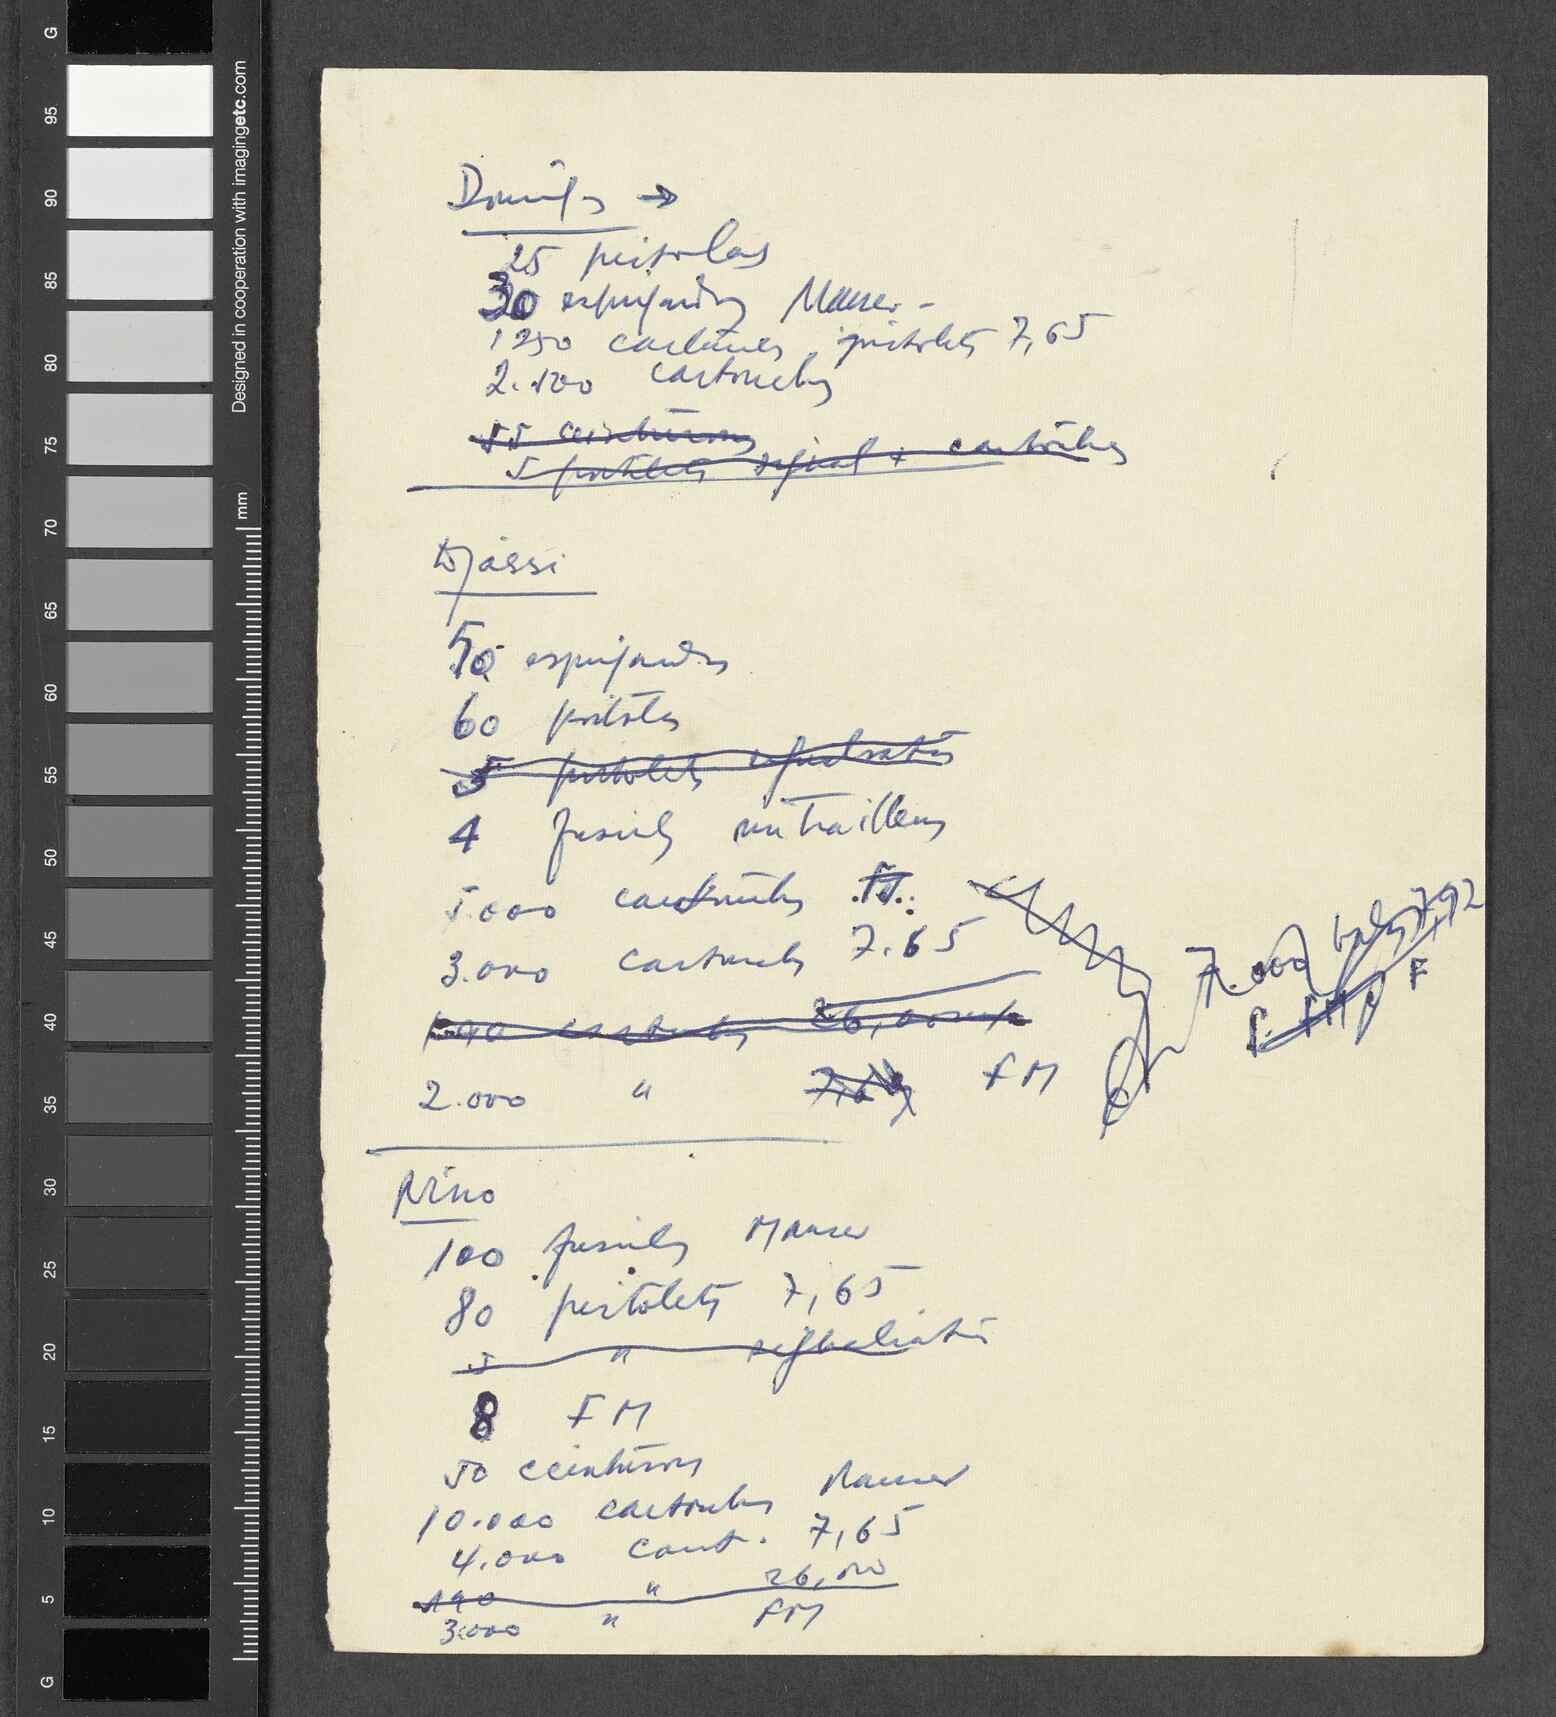 G
95
90
85
80
75
70
65
60
55
50
45
40
35
30
25
20
15
10
5
G
Designed in cooperation with imagingetc.com
mm
Domigs →
25 pistolas
30 espingardas Mauser -
1250 cartouches pistolets 7,65
2.100 cartouches
55 ceinturons
5 pistolets signal + cartouches
Djassi
50 espingardas
60 pistolets
5 pistolets
4 fusils mitrailleurs
5.000 cartouches
3.000 cartouches 7.65
cartouches 26,00
2.000 " 7,65 FM
7.000 balas 7,92
F
Nino
100 fusils Mauser
80 pistolets 7,65
5 "
8 FM
50 ceinturons
10.000 cartouches Mauser
4.000 cart. 7,65
190 " 26,00
3.000 " FM